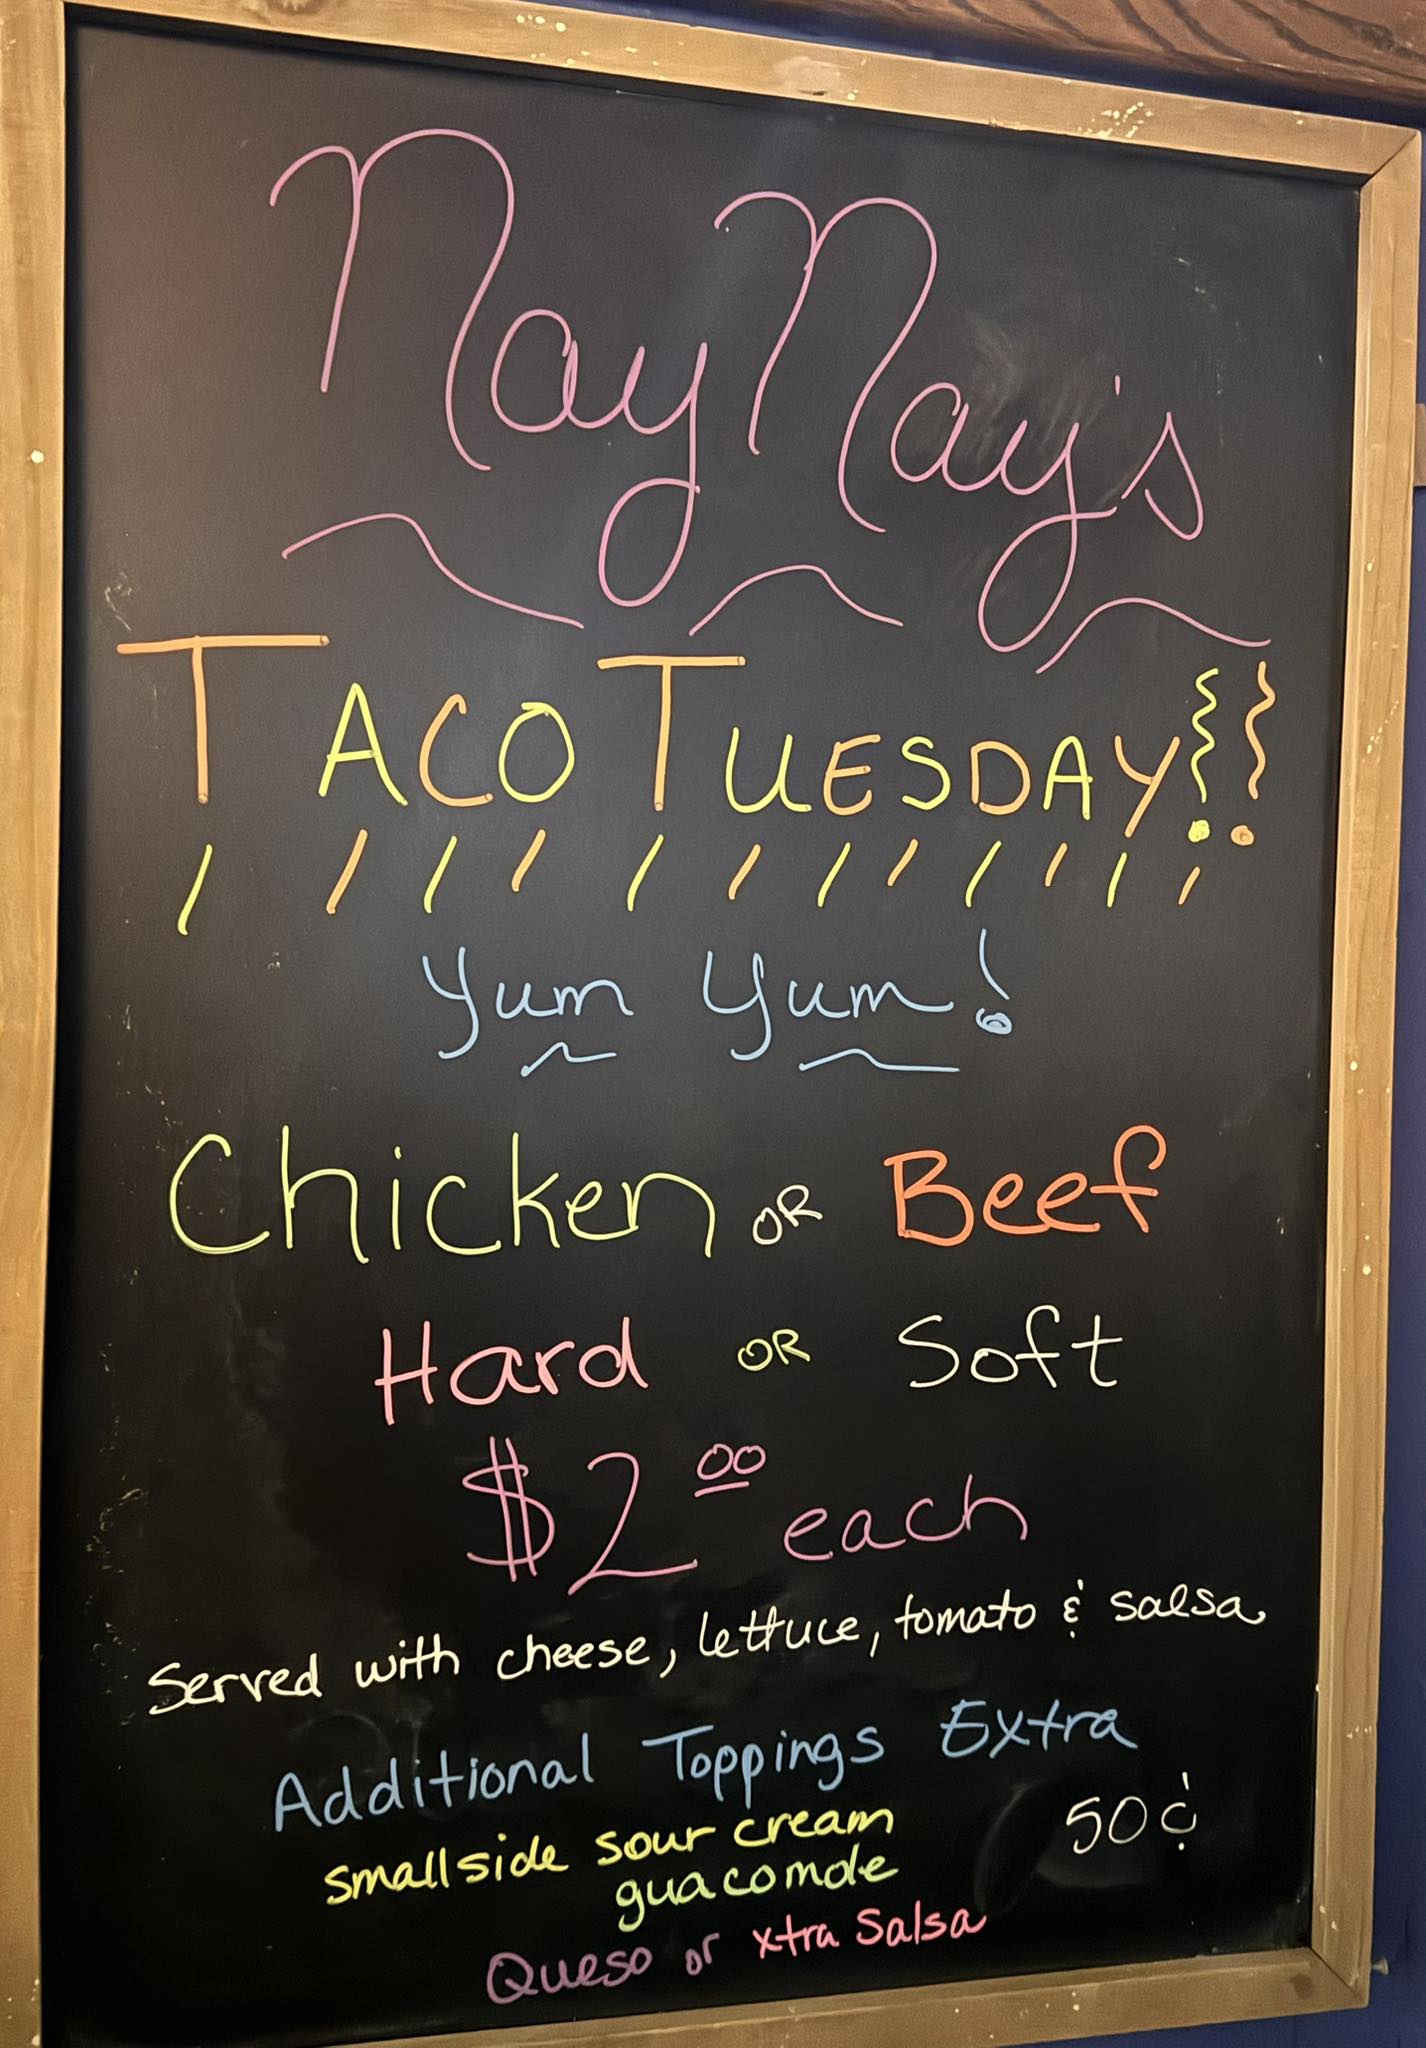 Nay Nay's
TACO TUESDAY!!
Yum Yum!
Chicken OR Beef
Hard OR Soft
$2.00 each
Served with cheese, lettuce, tomato & salsa
Additional Toppings Extra
small side sour cream 50¢
guacomole
Queso or xtra Salsa